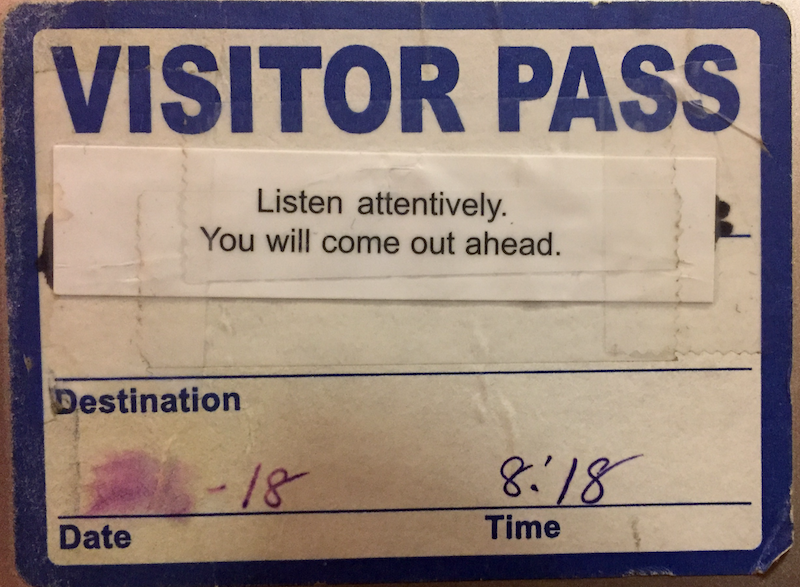 VISITOR PASS
Listen attentively.
You will come out ahead.
Destination
-18 8:18
Date Time